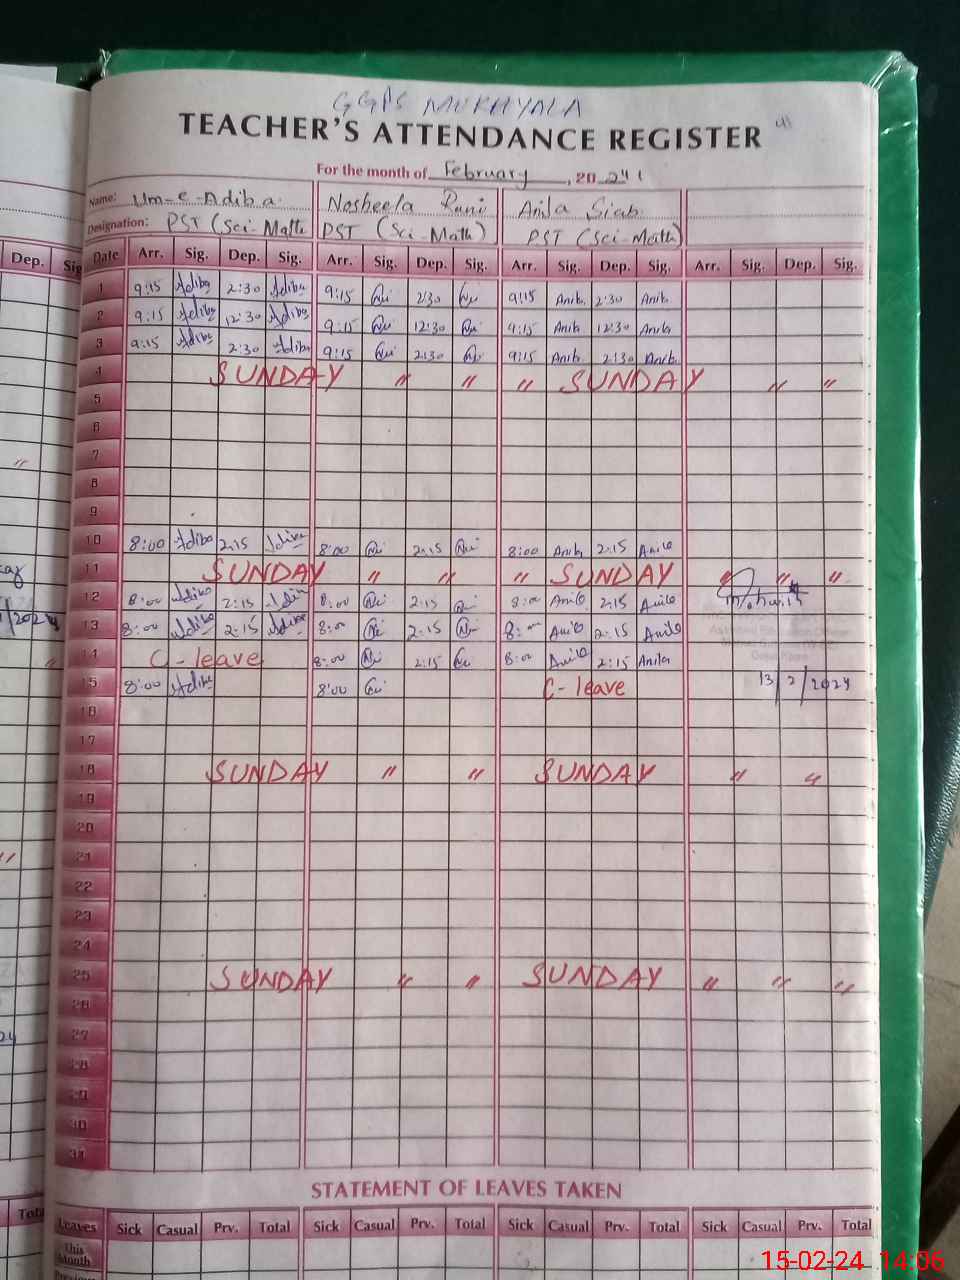 GGPS MUKHYALA
TEACHER'S ATTENDANCE REGISTER
For the month of February, 2024
Name: Um-e-Adiba Nosheela Rani Anila Siab
Designation: PST (Sci-Math PST (Sci-Math) PST (Sci-Math)
Dep. Sig Date Arr. Sig. Dep. Sig. Arr. Sig. Dep. Sig. Arr. Sig. Dep. Sig. Arr. Sig. Dep. Sig.
1 9:15 Adiba 2:30 Adiba 9:15 2:30 9:15 2:30
2 9:15 Adiba 12:30 Adiba 9:15 12:30 9:15 12:30
3 9:15 Adiba 2:30 Adiba 9:15 2:30 9:15 2:30
4 SUNDAY " " " SUNDAY " "
5
6
7 "
8
9
10 8:00 Adiba 2:15 Adiba 8:00 2:15 8:00 2:15
11 SUNDAY " " " SUNDAY " " "
12 8:00 Adiba 2:15 Adiba 8:00 2:15 8:00 2:15
13 8:00 Adiba 2:15 Adiba 8:00 2:15 8:00 2:15
14 C-leave 8:00 2:15 8:00 2:15
15 8:00 Adiba 8:00 C-leave 13/2/2024
16
17
18 SUNDAY " " SUNDAY " "
19
20
21
22
23
24
25 SUNDAY " " SUNDAY " " "
26
27
28
29
30
31
STATEMENT OF LEAVES TAKEN
Total Leaves Sick Casual Prv. Total Sick Casual Prv. Total Sick Casual Prv. Total Sick Casual Prv. Total
This Month
15-02-24 14:06